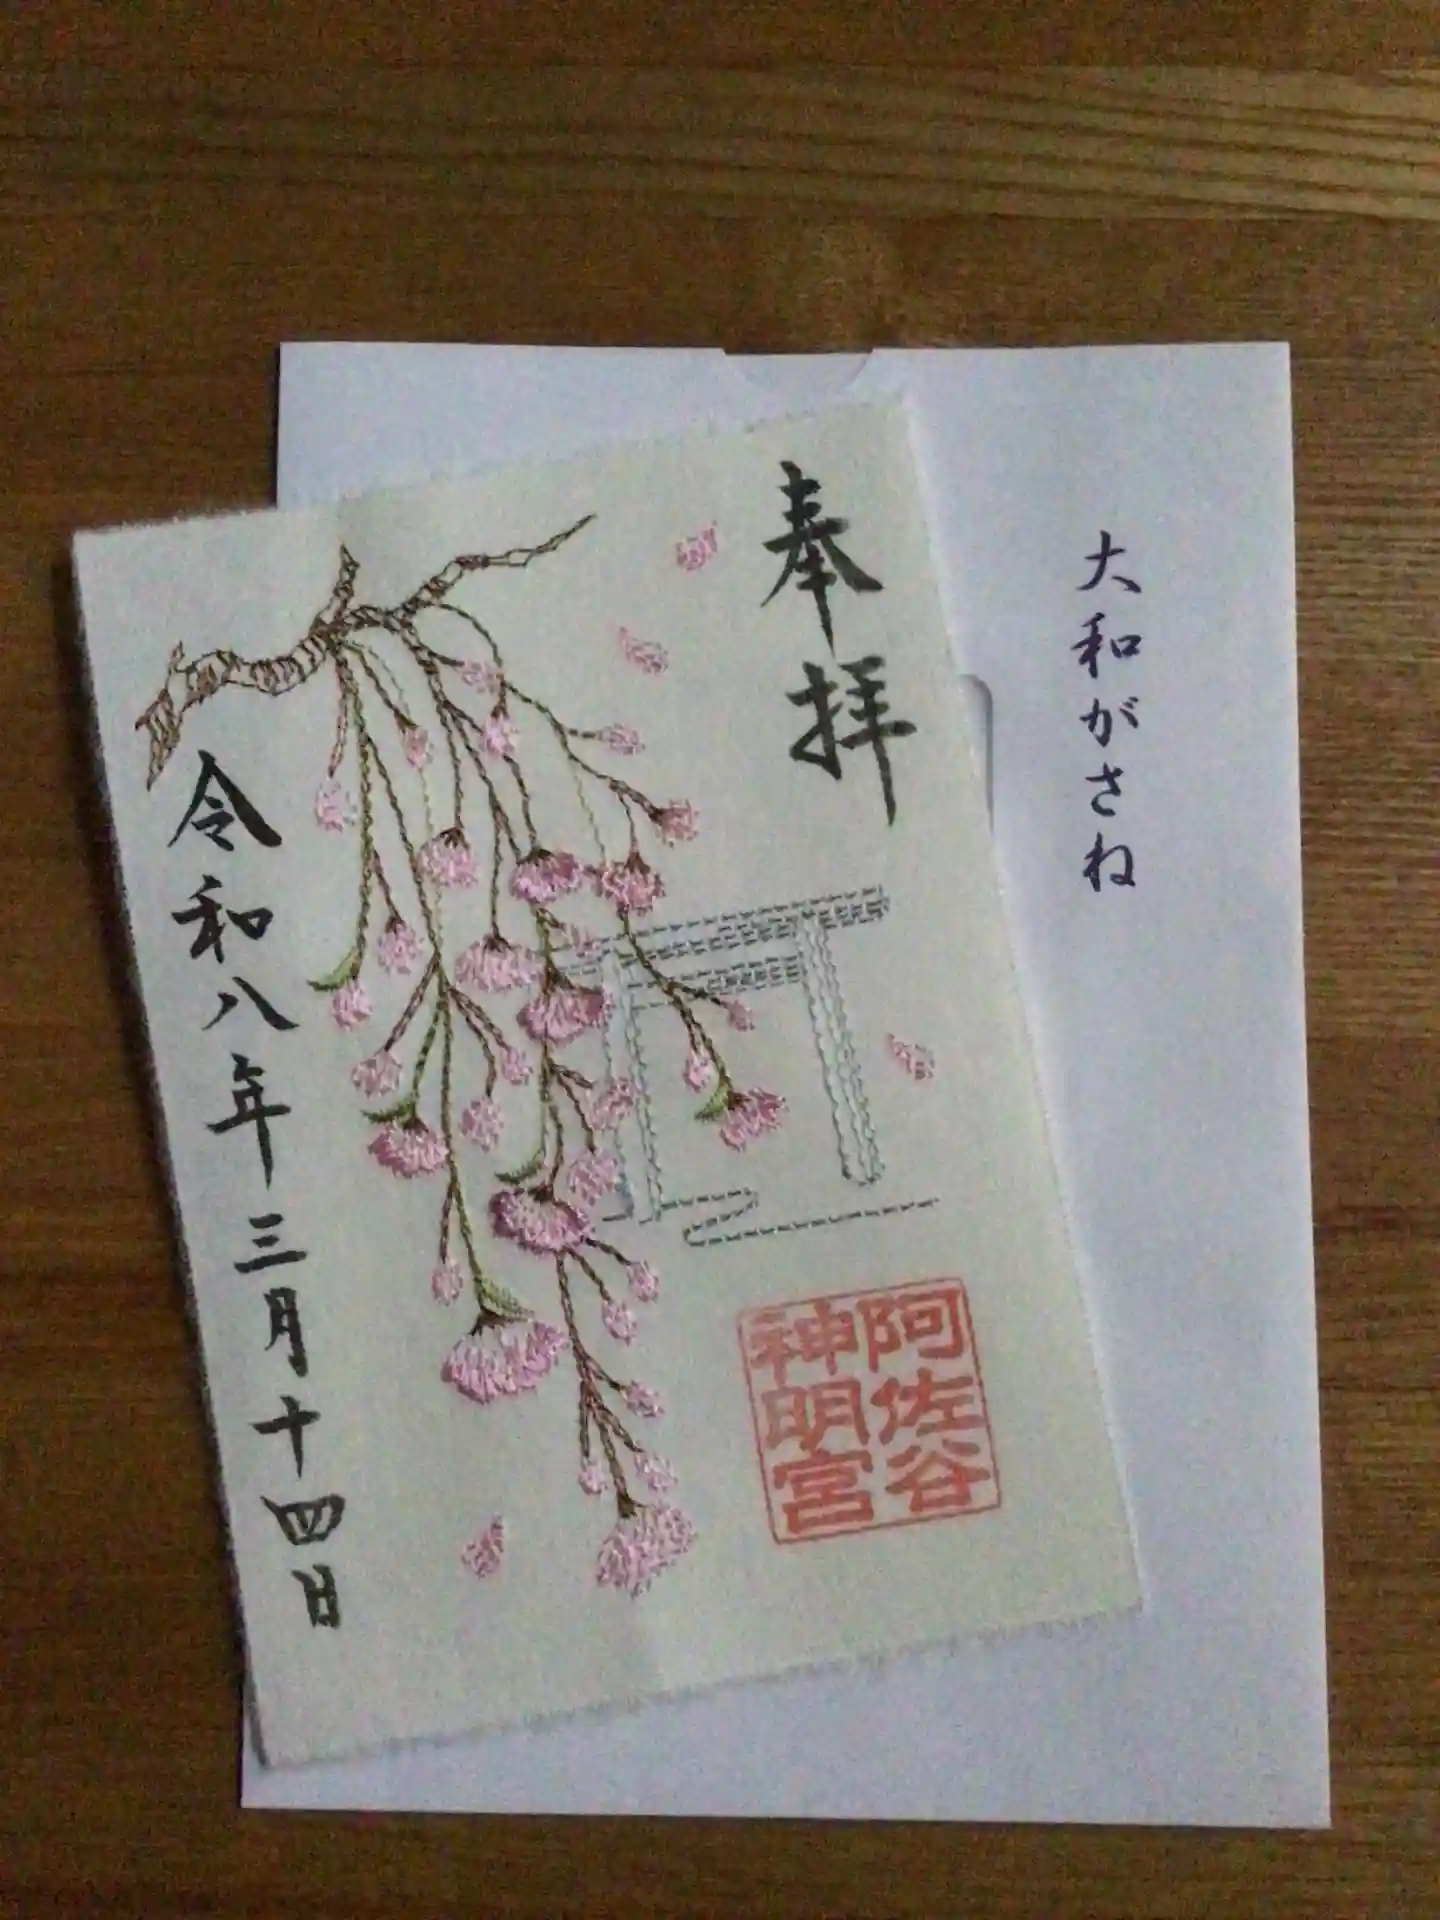 大和がさね
奉拝
阿佐谷
神明宮
令和八年三月十四日